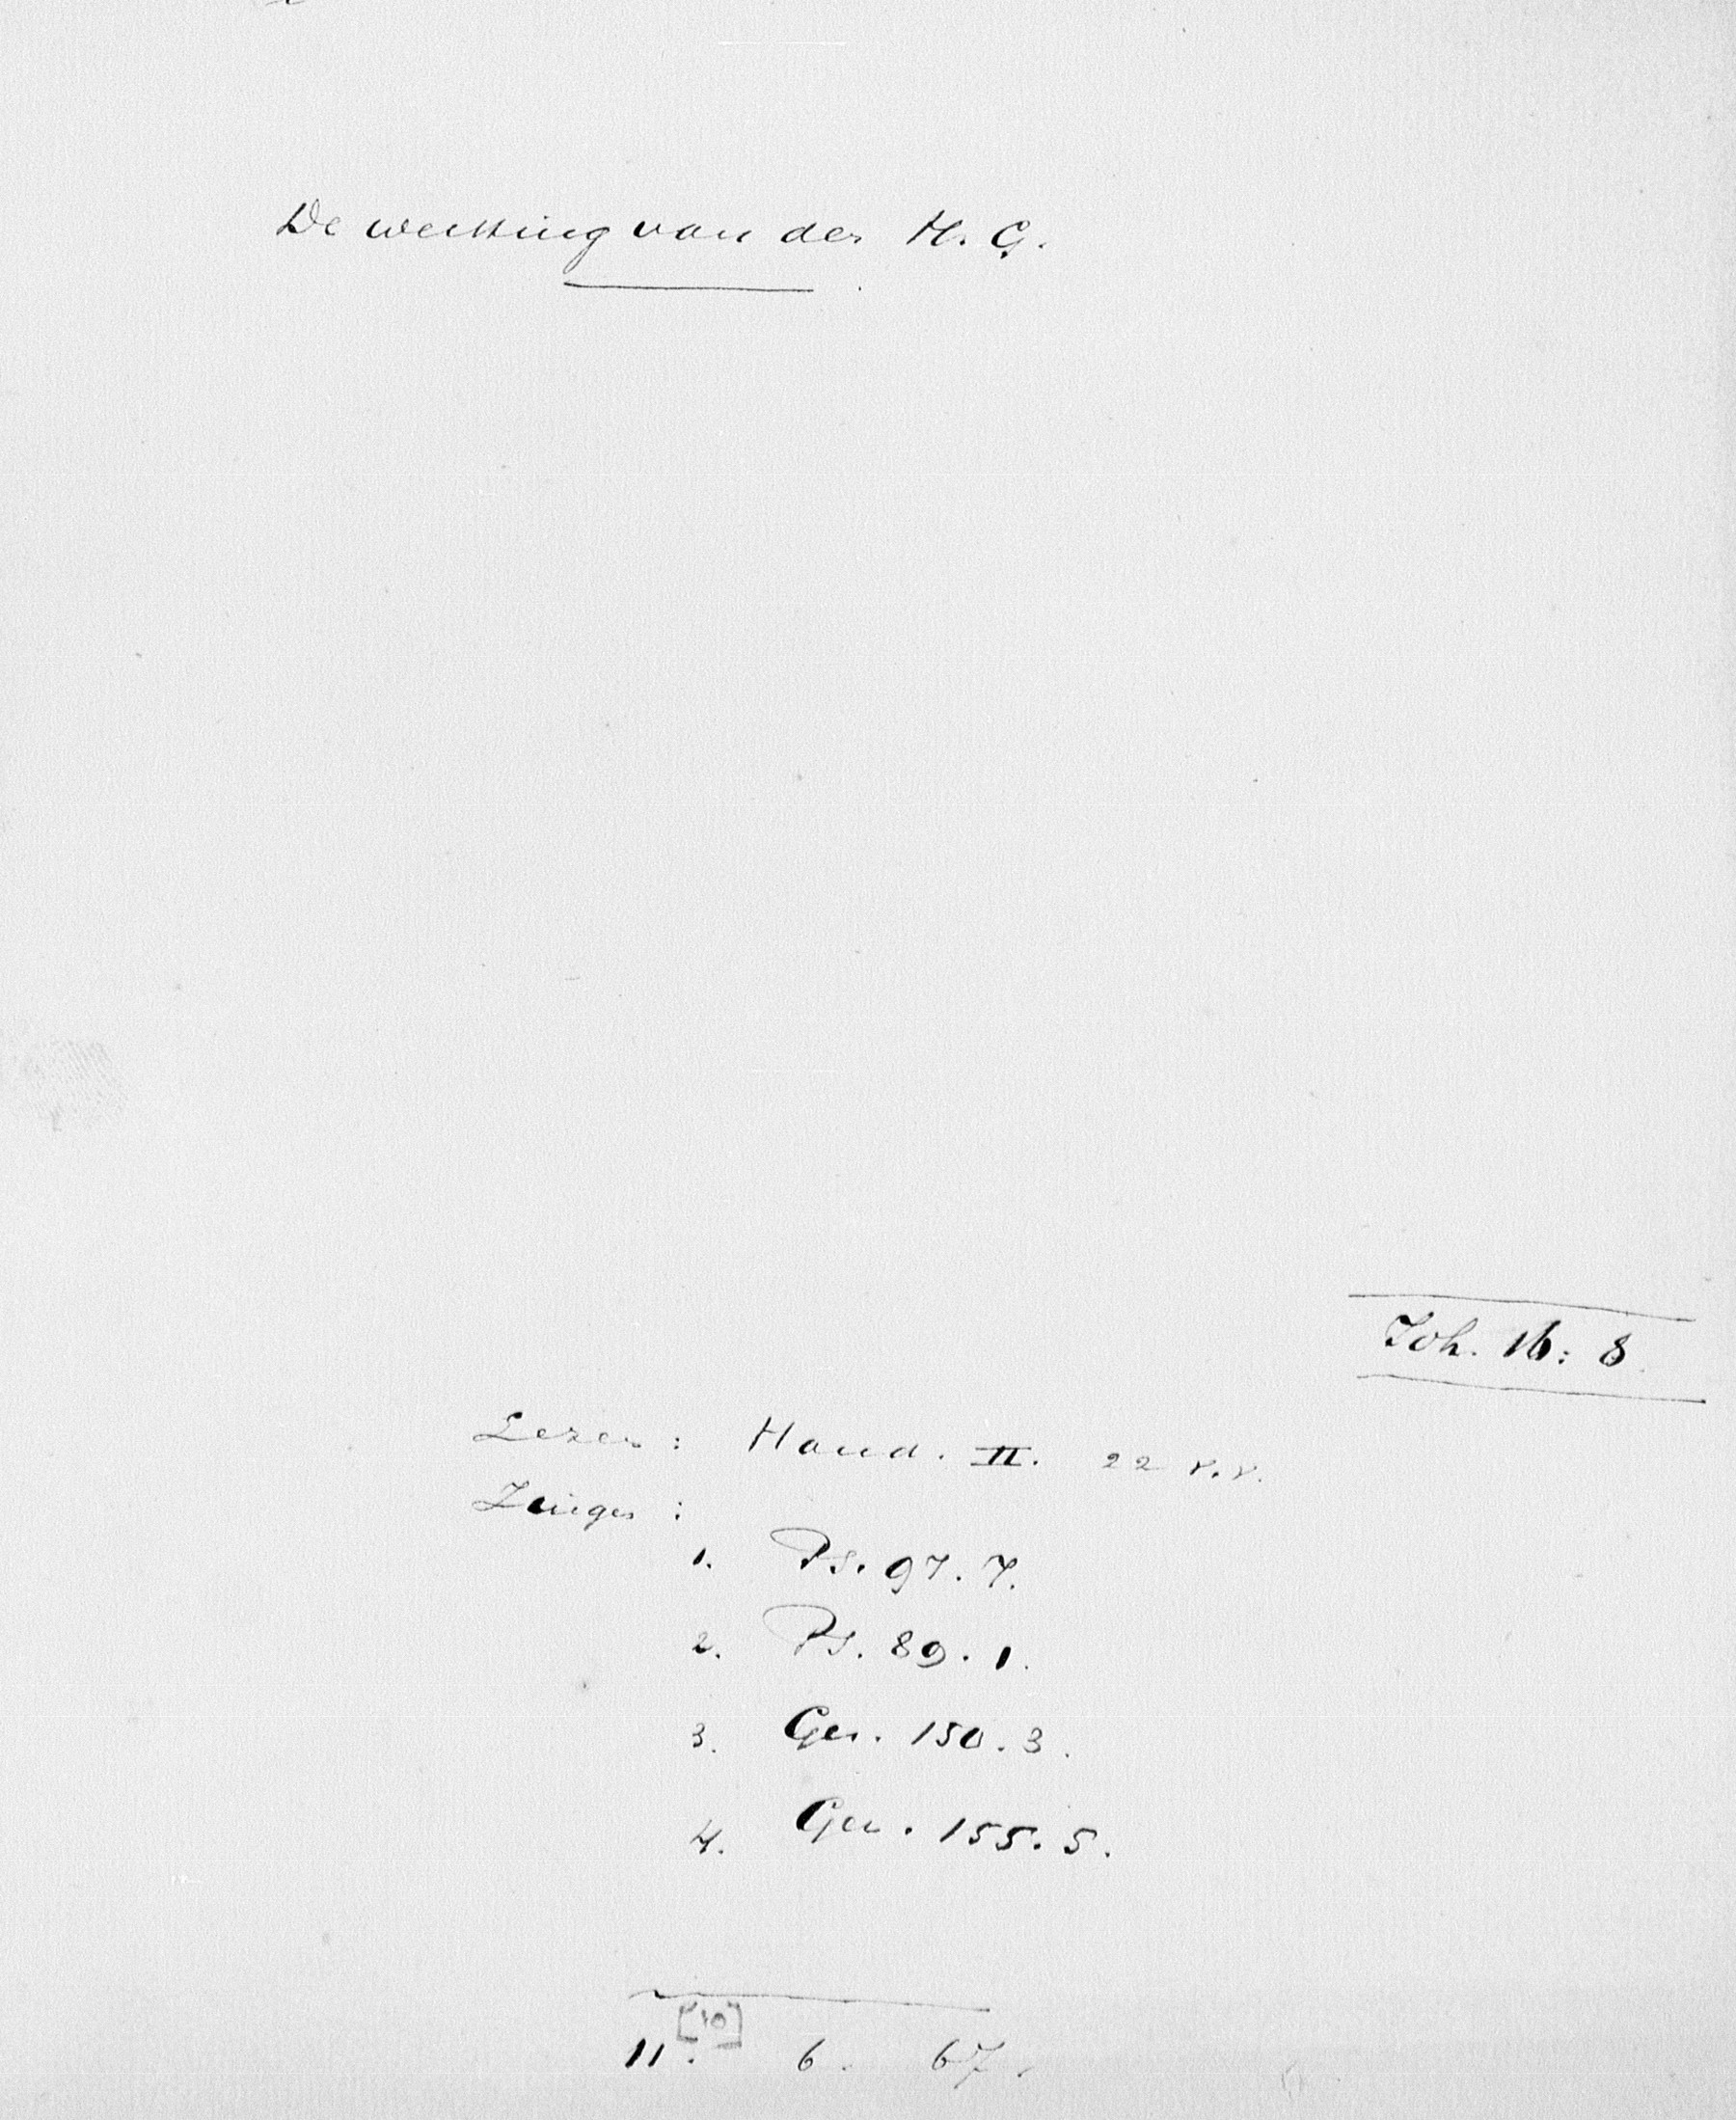 De werking van den H. G.
Joh. 16: 8
Lezen: Hand. II. 22 v.v.
Zingen:
1. Ps. 97. 7.
2. Ps. 89. 1.
3. Gez. 150. 3.
4. Gez. 155. 5.
[10]
11. 6. 67.